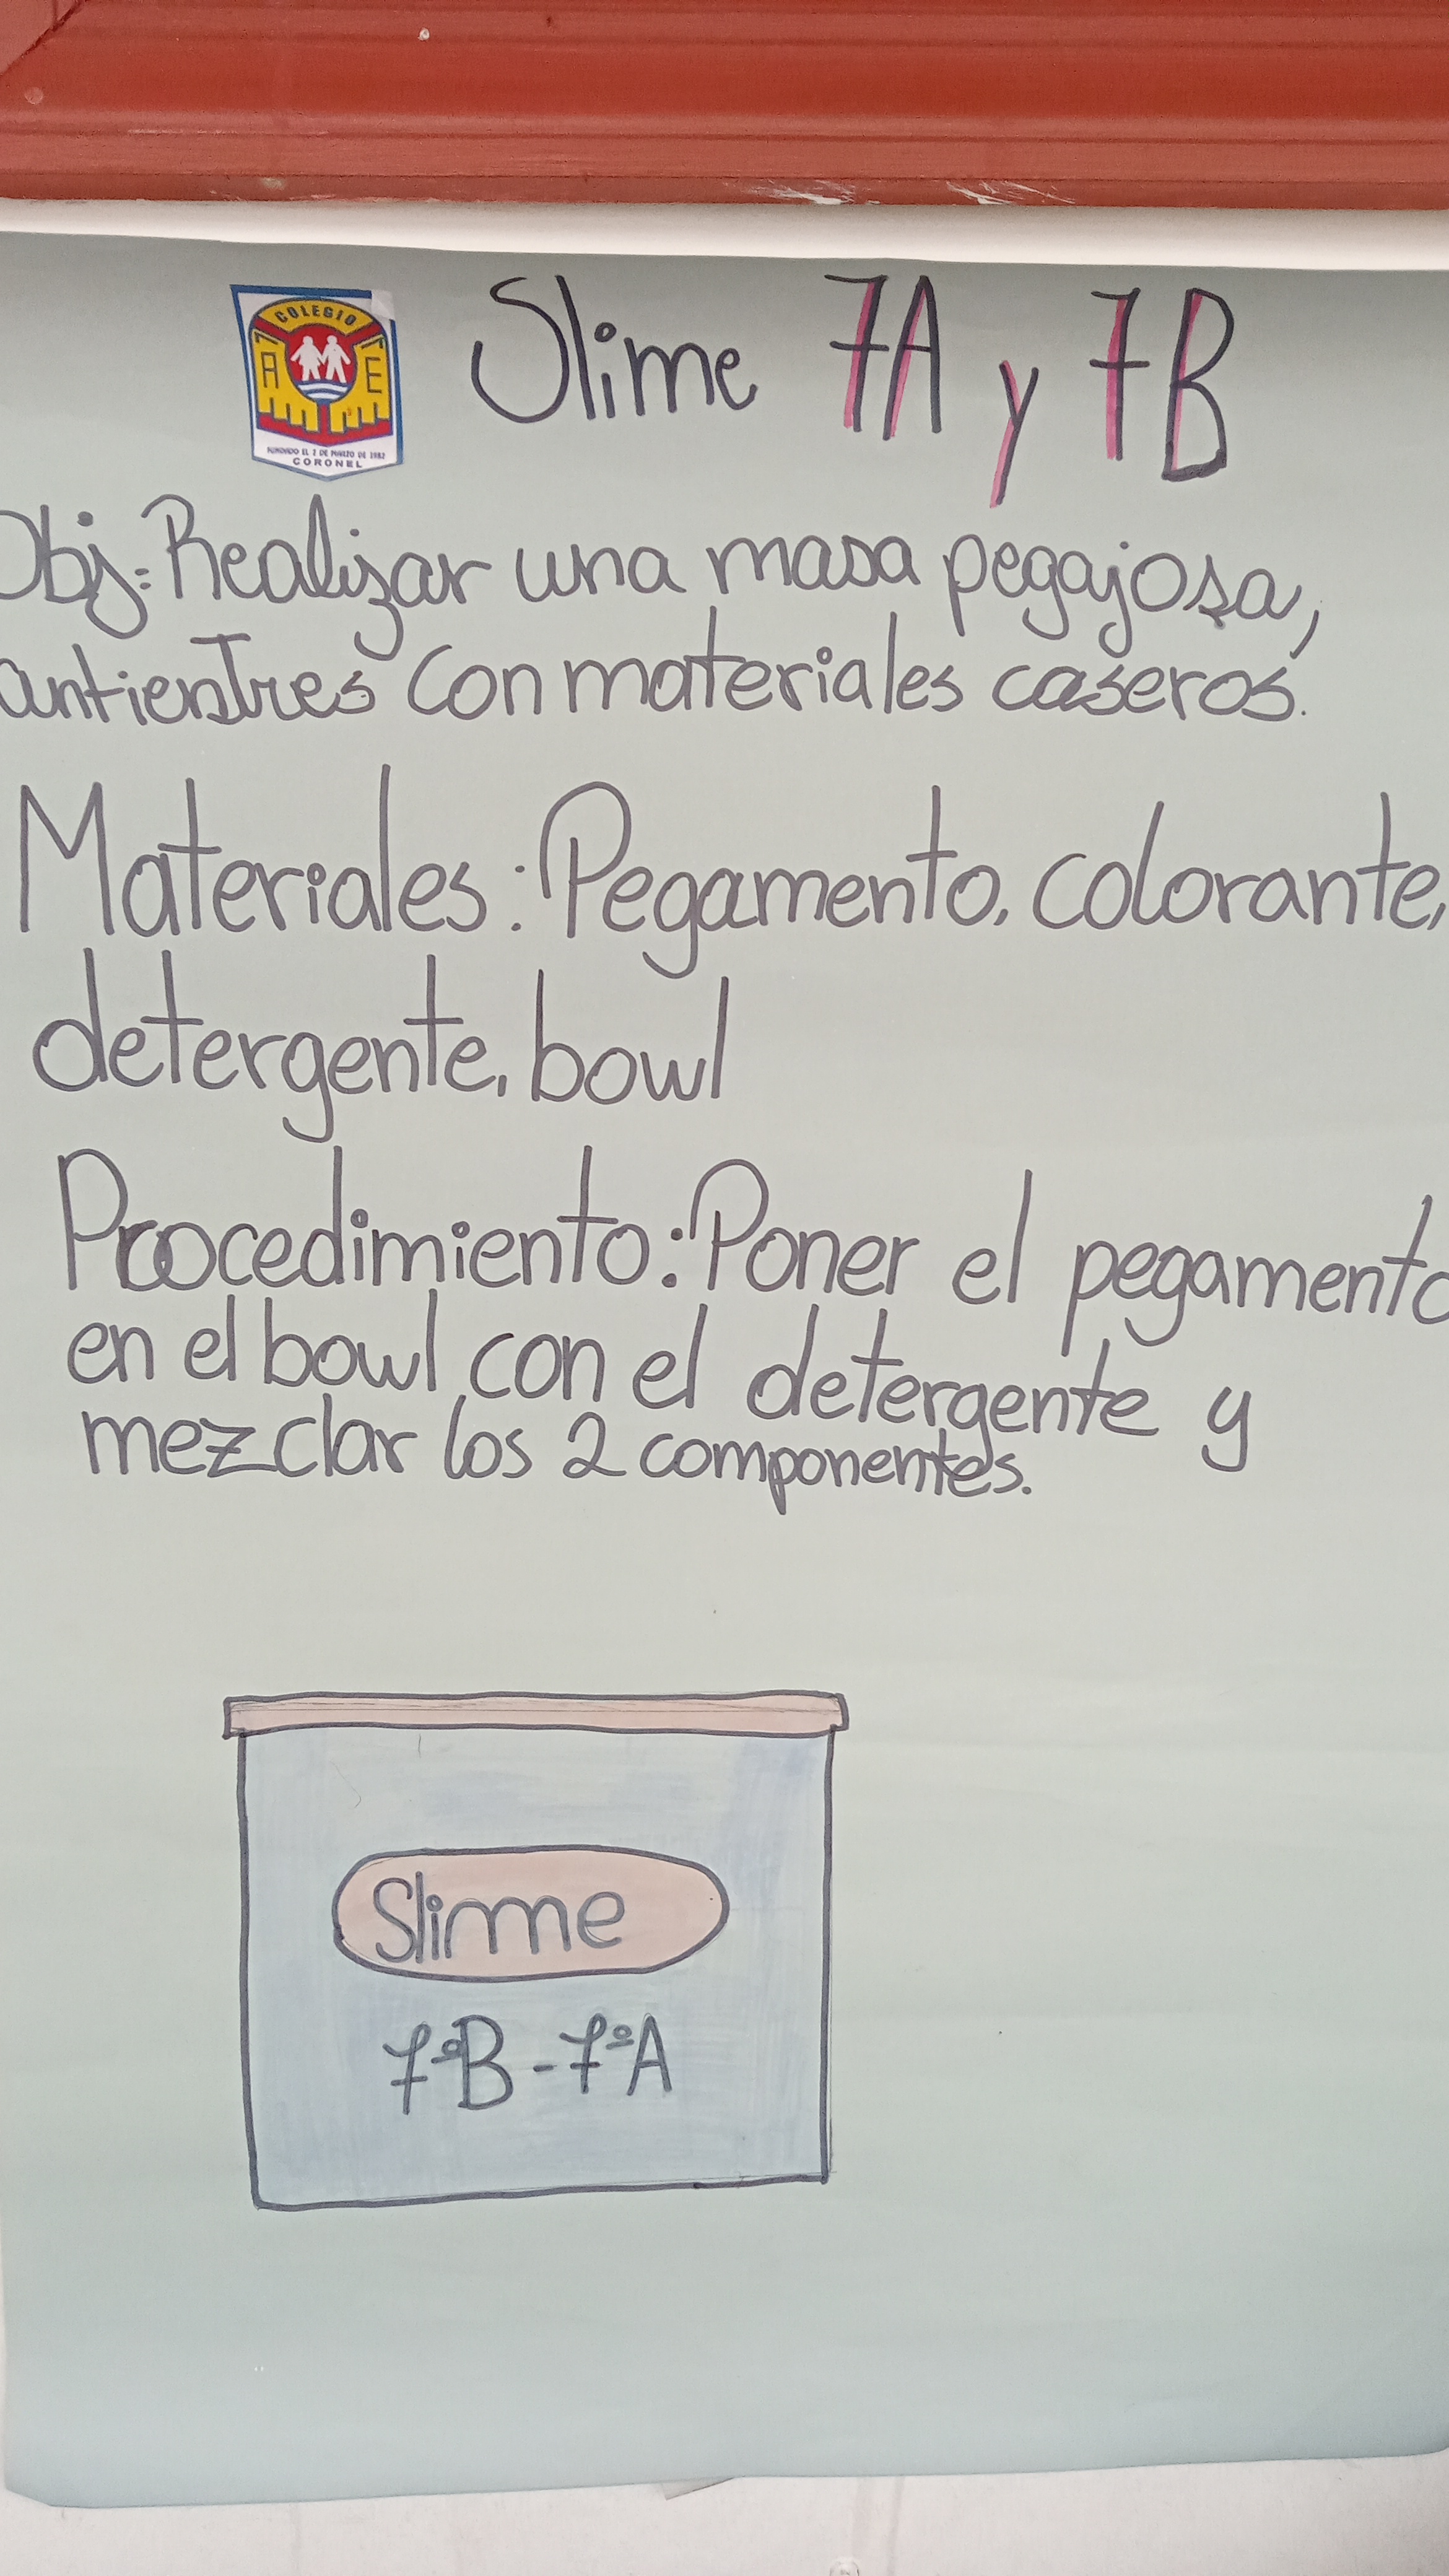 COLEGIO
A E
FUNDADO EL 2 DE MARZO DE 1982
CORONEL
Slime 7A y 7B
Obj: Realizar una masa pegajosa,
antiestres con materiales caseros.
Materiales: Pegamento, colorante,
detergente, bowl
Procedimiento: Poner el pegamento
en el bowl, con el detergente y
mezclar los 2 componentes.
Slime
7ºB - 7ºA